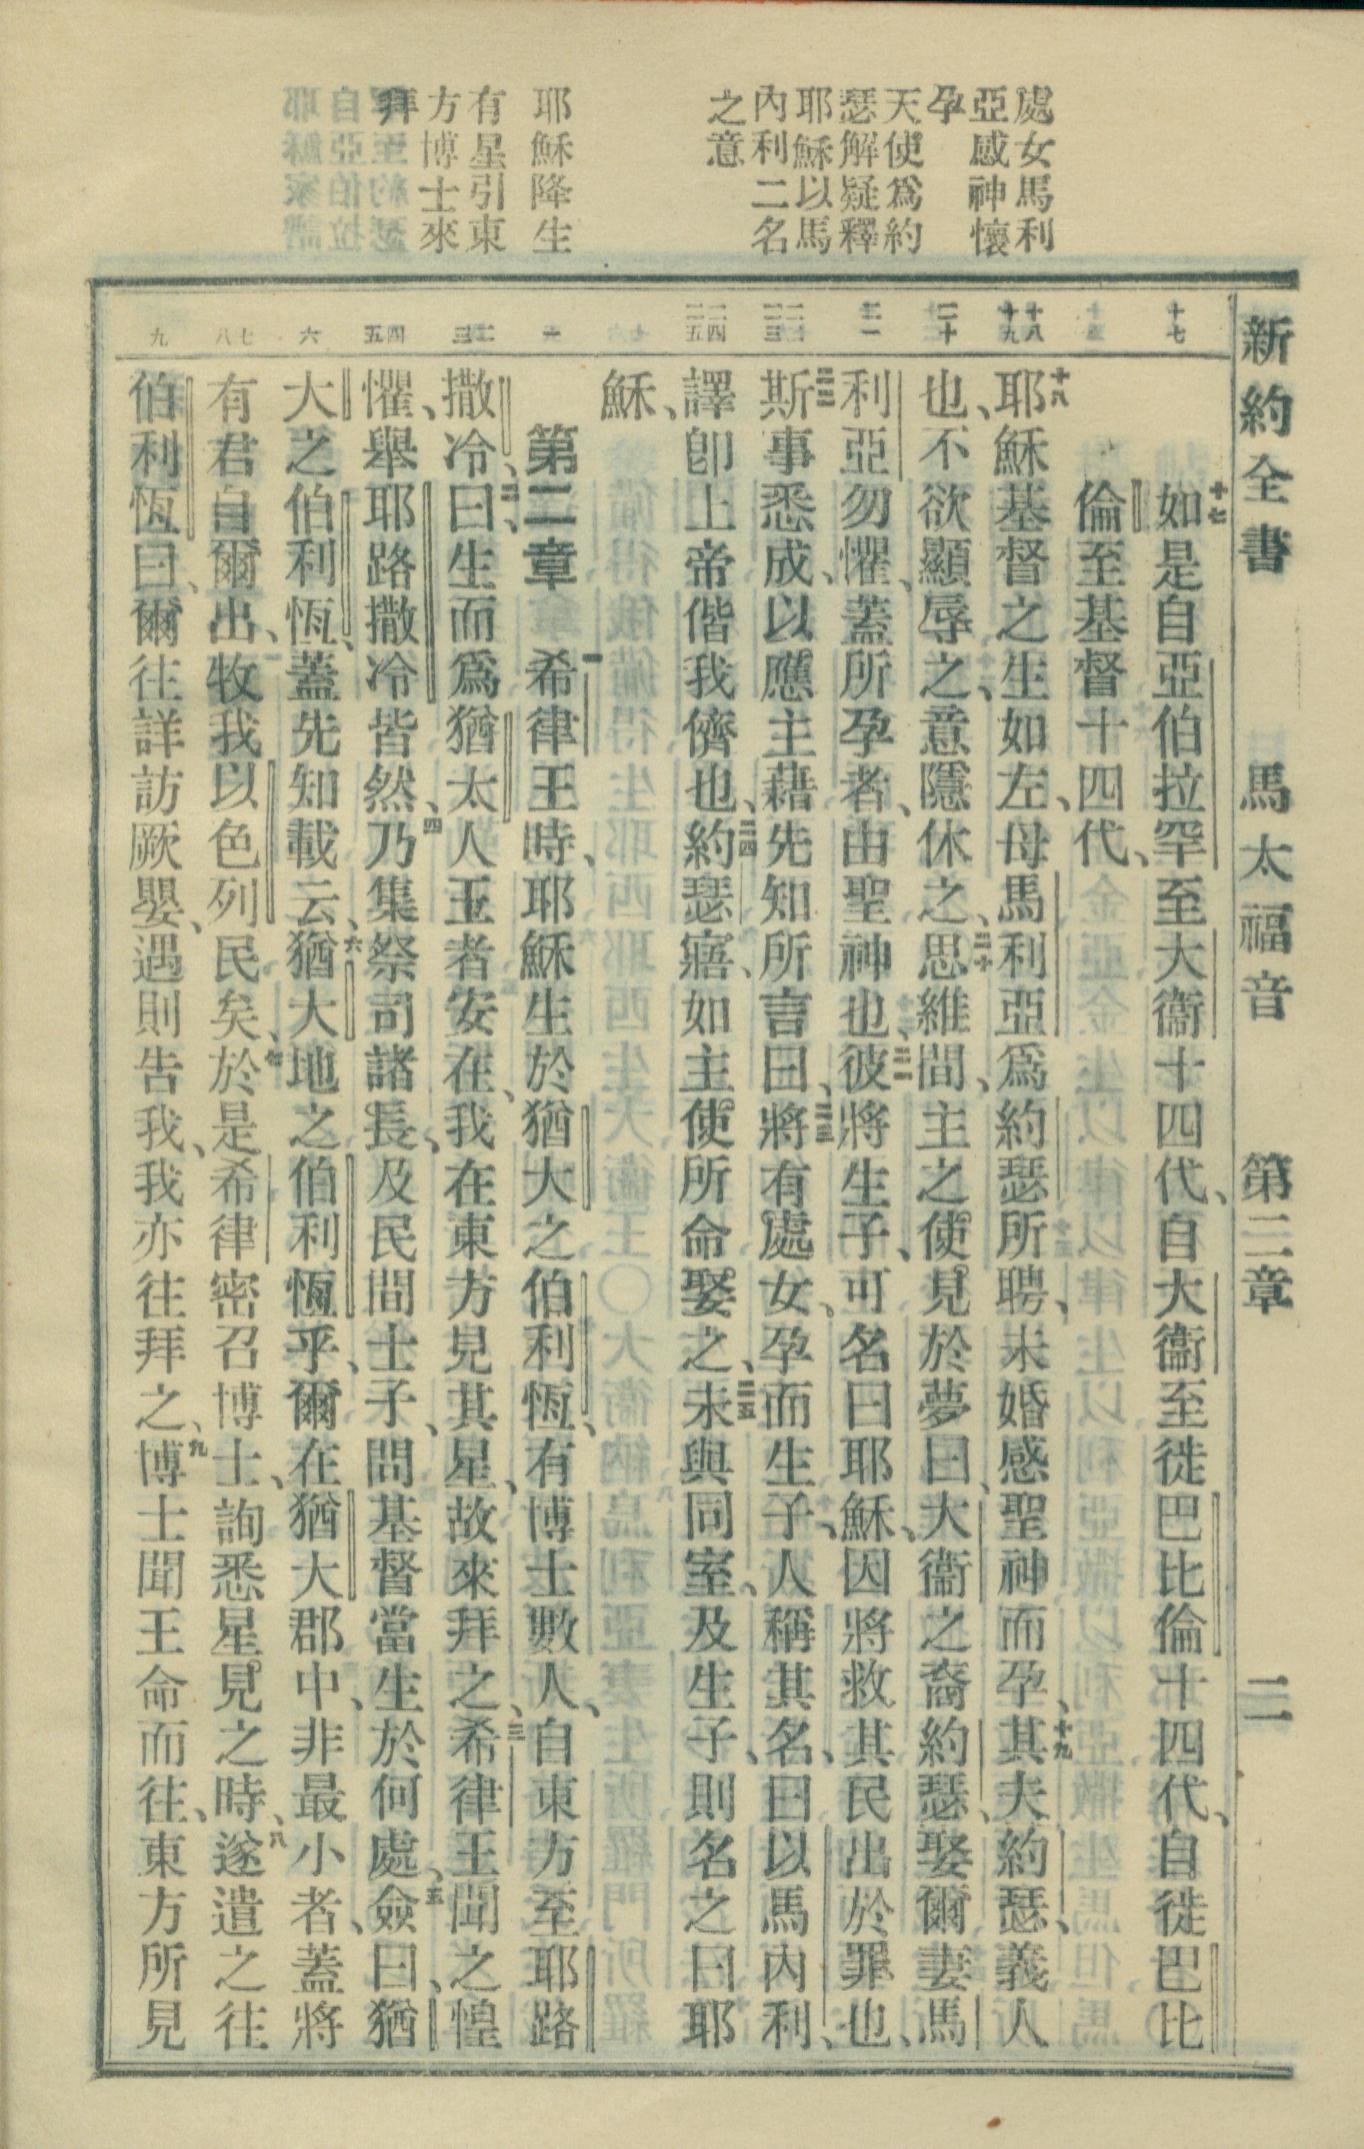 新約全書　馬太福音　第二章　二
處女馬利
亞感神懷
孕
天使爲約
瑟解疑釋
耶穌以馬
內利二名
之意
耶穌降生
有星引東
方博士來
拜
十七
十八
十九
二十
二一
二二
二三
二四
二五
一
二
三
四
五
六
七
八
九
十七如是自亞伯拉罕至大衞十四代、自大衞至徙巴比倫十四代、自徙巴比
倫至基督十四代、
十八耶穌基督之生如左、母馬利亞爲約瑟所聘、未婚感聖神而孕、十九其夫約瑟、義人
也、不欲顯辱之、意隱休之、二十思維間、主之使見於夢曰、大衞之裔約瑟、娶爾妻馬
利亞勿懼、蓋所孕者、由聖神也、二一彼將生子、可名曰耶穌、因將救其民出於罪也、
二二斯事悉成、以應主藉先知所言曰、二三將有處女、孕而生子、人稱其名、曰以馬內利、
譯卽上帝偕我儕也、二四約瑟寤、如主使所命娶之、二五未與同室、及生子、則名之曰耶
穌、
第二章　一希律王時、耶穌生於猶大之伯利恆、有博士數人、自東方至耶路
撒冷、二曰、生而爲猶太人王者安在、我在東方見其星、故來拜之、三希律王聞之惶
懼、舉耶路撒冷皆然、四乃集祭司諸長、及民間士子、問基督當生於何處、五僉曰、猶
大之伯利恆、蓋先知載云、六猶大地之伯利恆乎、爾在猶大郡中、非最小者、蓋將
有君自爾出、牧我以色列民矣、七於是希律密召博士、詢悉星見之時、八遂遣之往
伯利恆曰、爾往詳訪厥嬰、遇則告我、我亦往拜之、九博士聞王命而往、東方所見